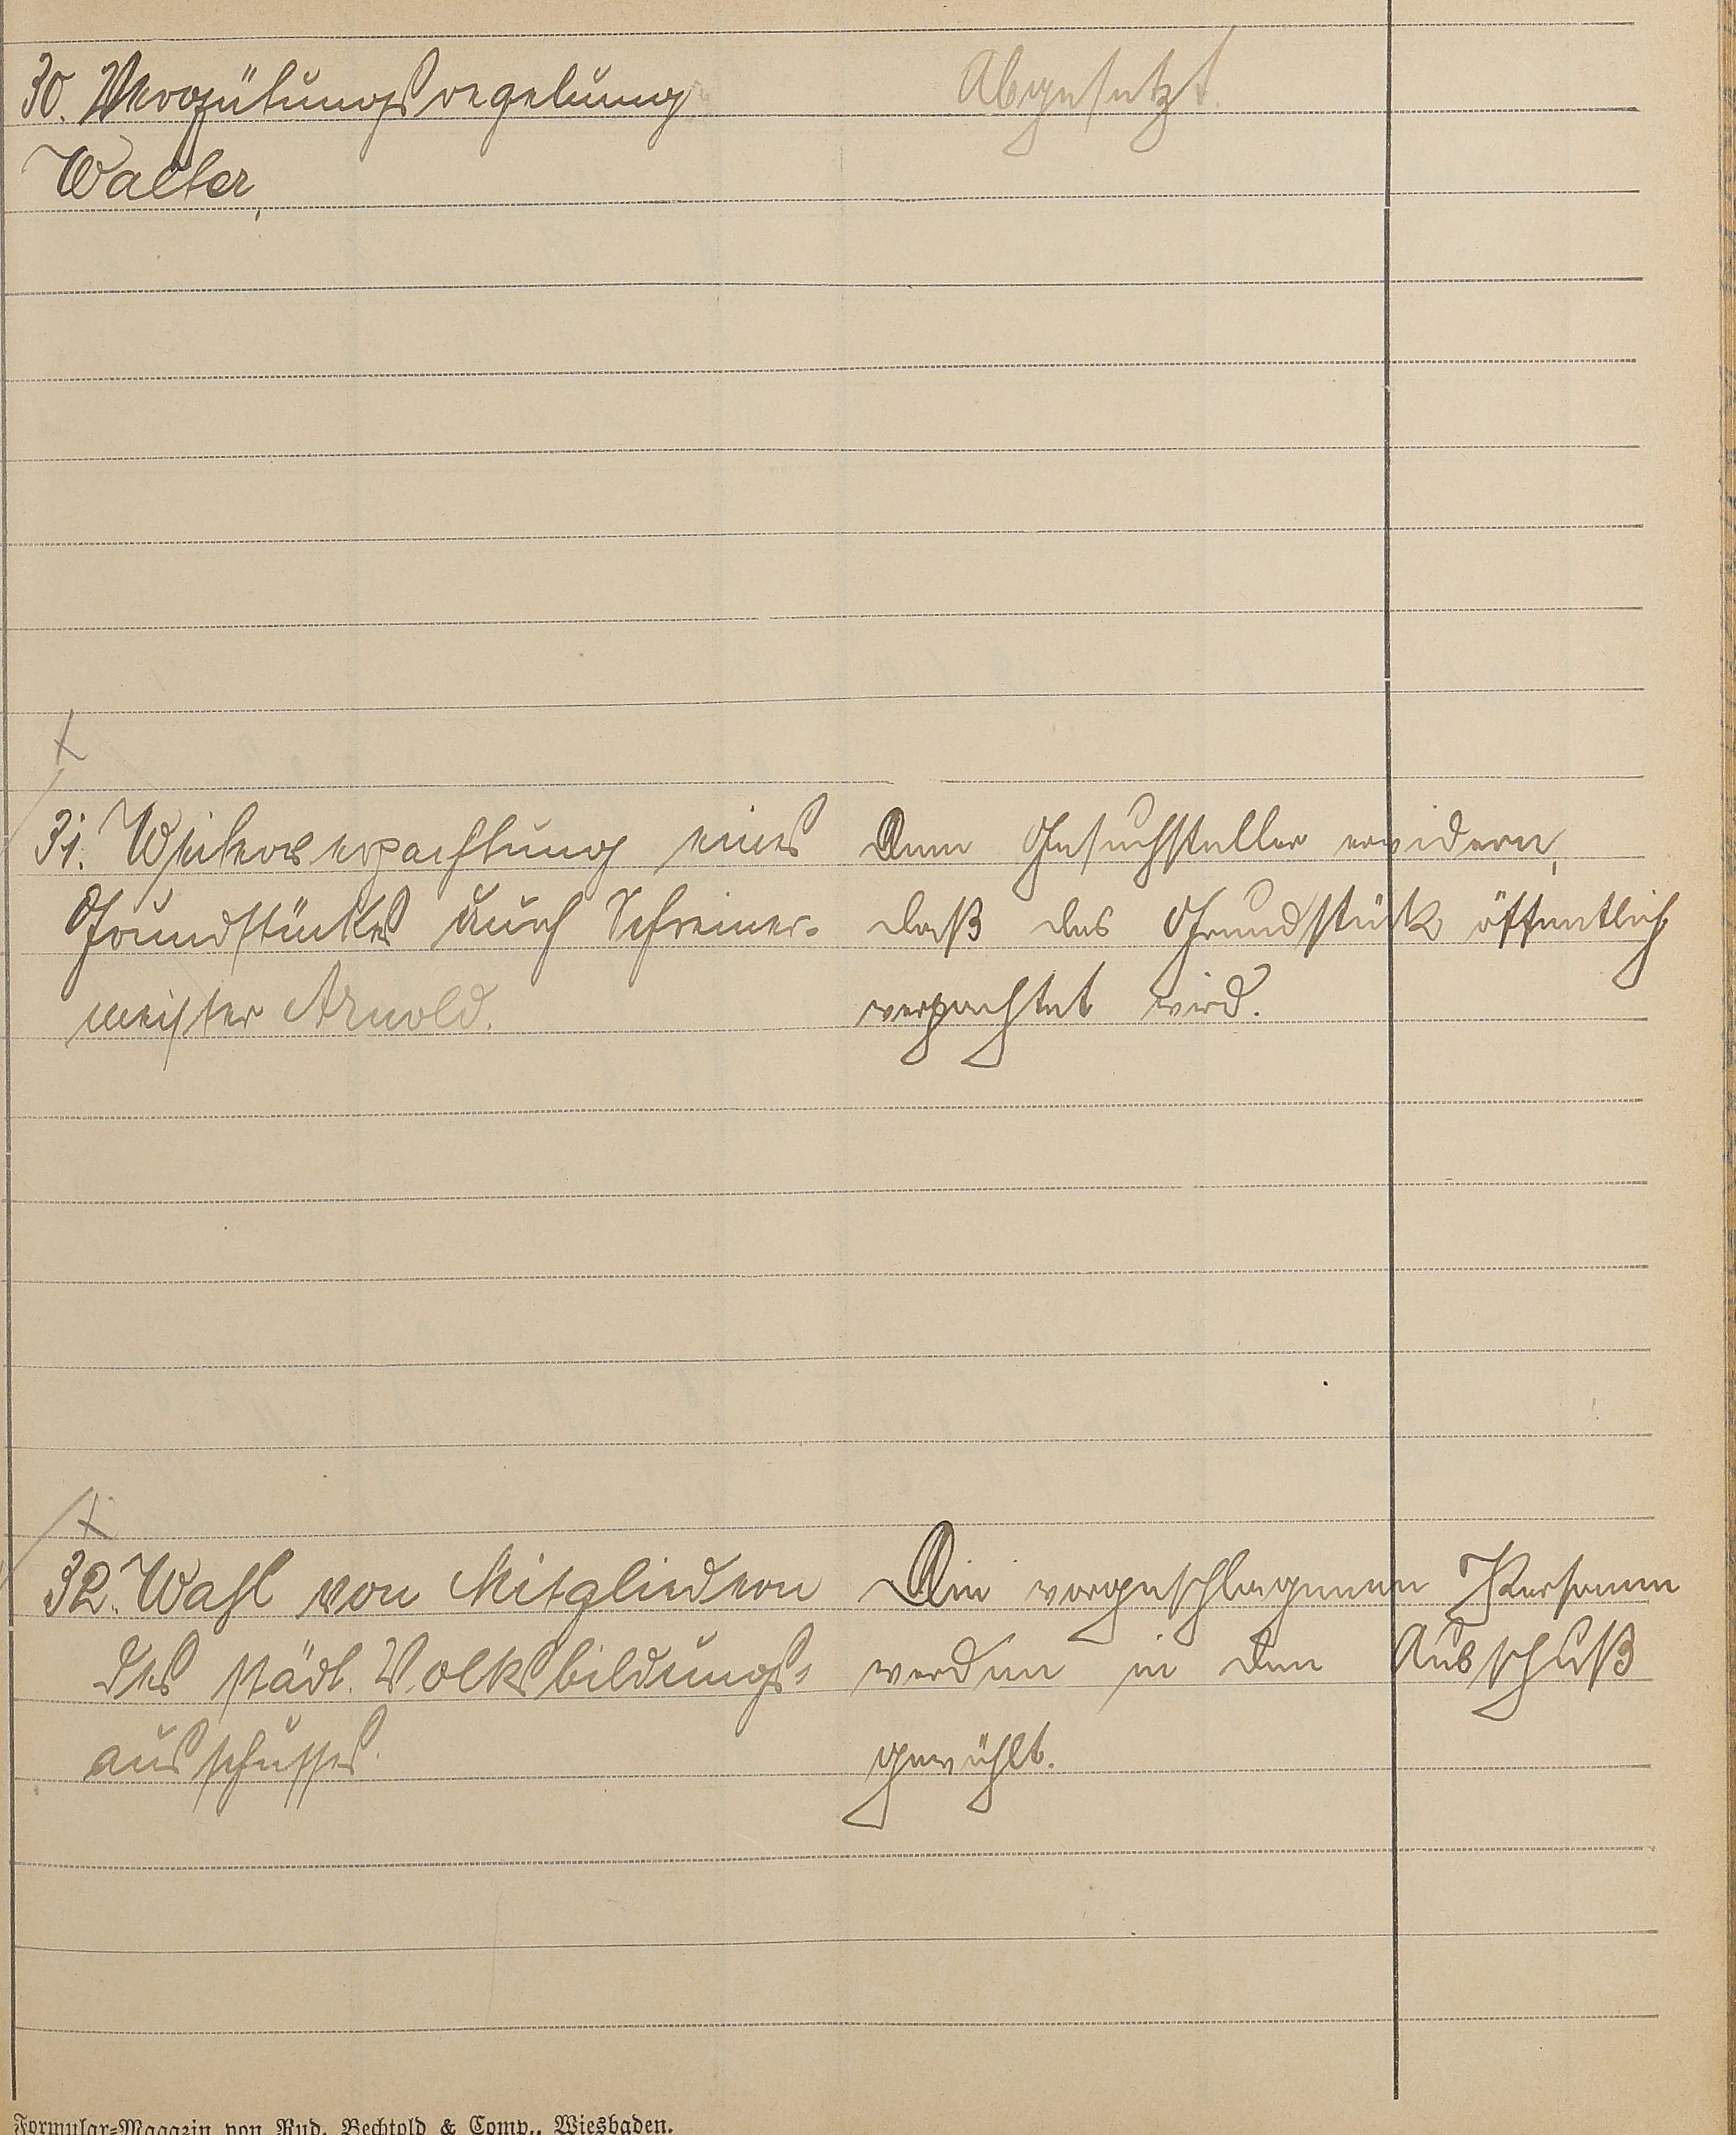 30. Vergütungsregelung
Walter,
Abgesetzt.
31. Weiterverpachtung eines
Grundstückes durch Schreiner-
meister Arnold.
Dem Gesuchsteller erwidern,
daß das Grundstück öffentlich
verpachtet wird.
32. Wahl von Mitgliedern
des städt. Volksbildungs-
ausschusses.
Die vorgeschlagenen Personen
werden in den Ausschuß
gewählt.
Formular-Magazin von Rud. Bechtold & Comp., Wiesbaden.